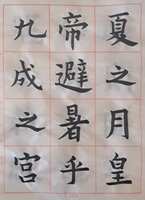 夏之月皇
帝避暑乎
九成之宫